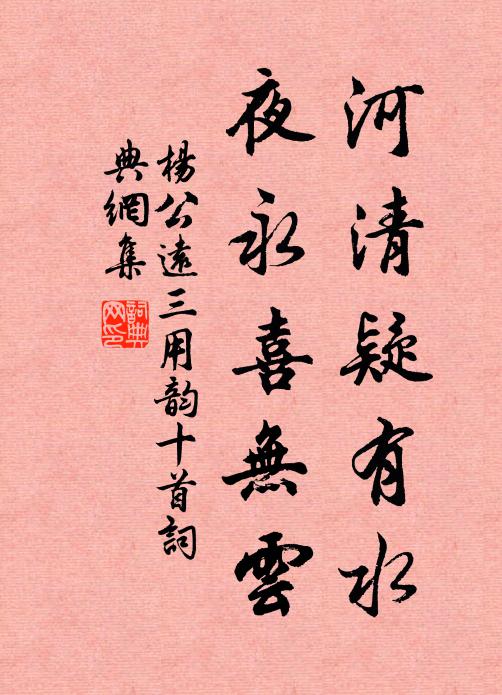 河清疑有水
夜永喜無雲
楊公遠三用韵十首詞
典網集
詞典網印